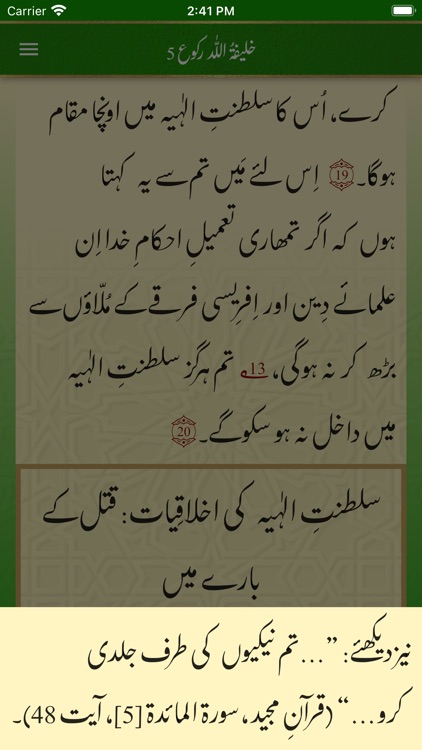 Carrier 2:41 PM
خلیفۃُ اللہ رکوع 5
کرے، اُس کا سلطنتِ الہٰیہ میں اونچا مقام
ہوگا۔ 19 اِس لئے مَیں تم سے یہ کہتا
ہوں کہ اگر تمھاری تعمیلِ احکامِ خدا اِن
علمائے دِین اور اِفرِیسی فرقے کے مُلّاؤں سے
بڑھ کر نہ ہوگی، 13 تم ہرگز سلطنتِ الہٰیہ
میں داخل نہ ہو سکو گے۔ 20
سلطنتِ الہٰیہ کی اخلاقِیات: قتل کے
بارے میں
نیز دیکھئے: ”…تم نیکیوں کی طرف جلدی
کرو…“ (قرآنِ مجید، سورۃ المائدۃ [5]، آیت 48)۔